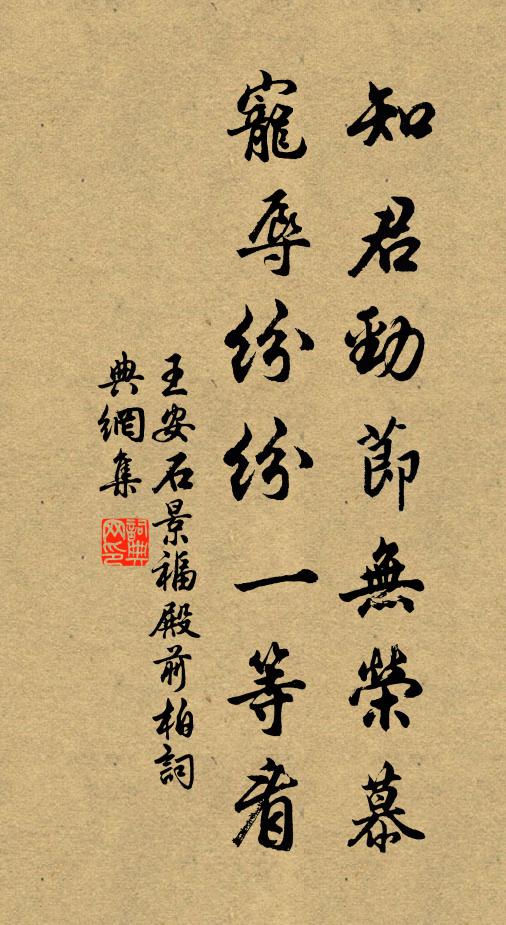 知君勁節無榮慕
寵辱紛紛一等看
王安石景福殿前柏詞
典網集
詞典网印